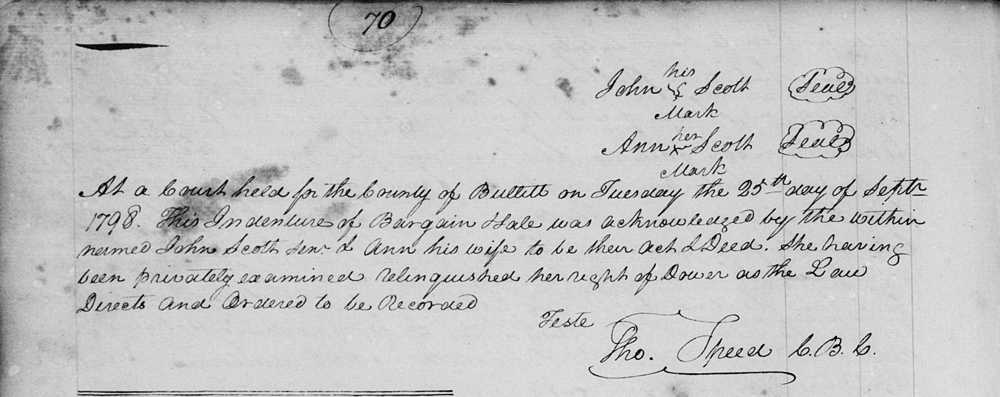 70
his
John S Scott Seal
Mark
her
Ann x Scott Seal
Mark
At a Court held for the County of Bullitt on Tuesday the 25th day of Septr
1798. This Indenture of Bargain & Sale was acknowledged by the within
named John Scott Senr. & Ann his wife to be their Act & Deed. She having
been privately examined relinquished her right of Dower as the Law
Directs and Ordered to be Recorded
Teste
Tho. Speed C.B.C.